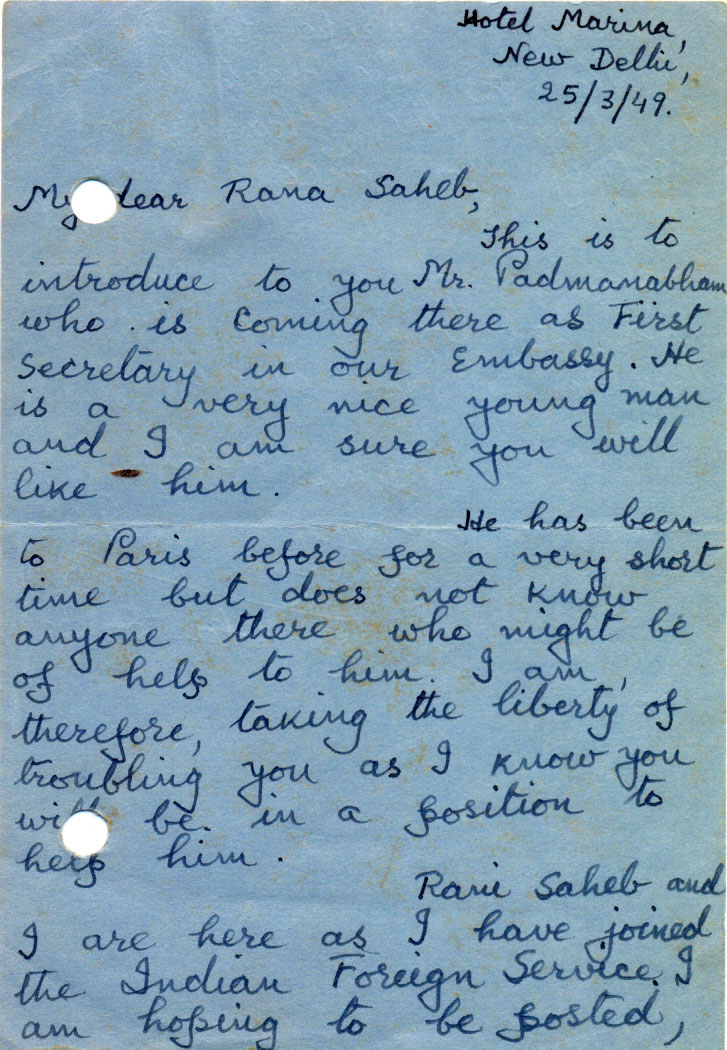 Hotel Marina,
New Delhi,
25/3/49.
My dear Rana Saheb,
This is to
introduce to you Mr. Padmanabham
who is coming there as First
Secretary in our Embassy. He
is a very nice young man
and I am sure you will
like him.
He has been
to Paris before for a very short
time but does not know
anyone there who might be
of help to him. I am,
therefore, taking the liberty of
troubling you as I know you
will be in a position to
help him.
Rani Saheb and
I are here as I have joined
the Indian Foreign Service. I
am hoping to be posted,